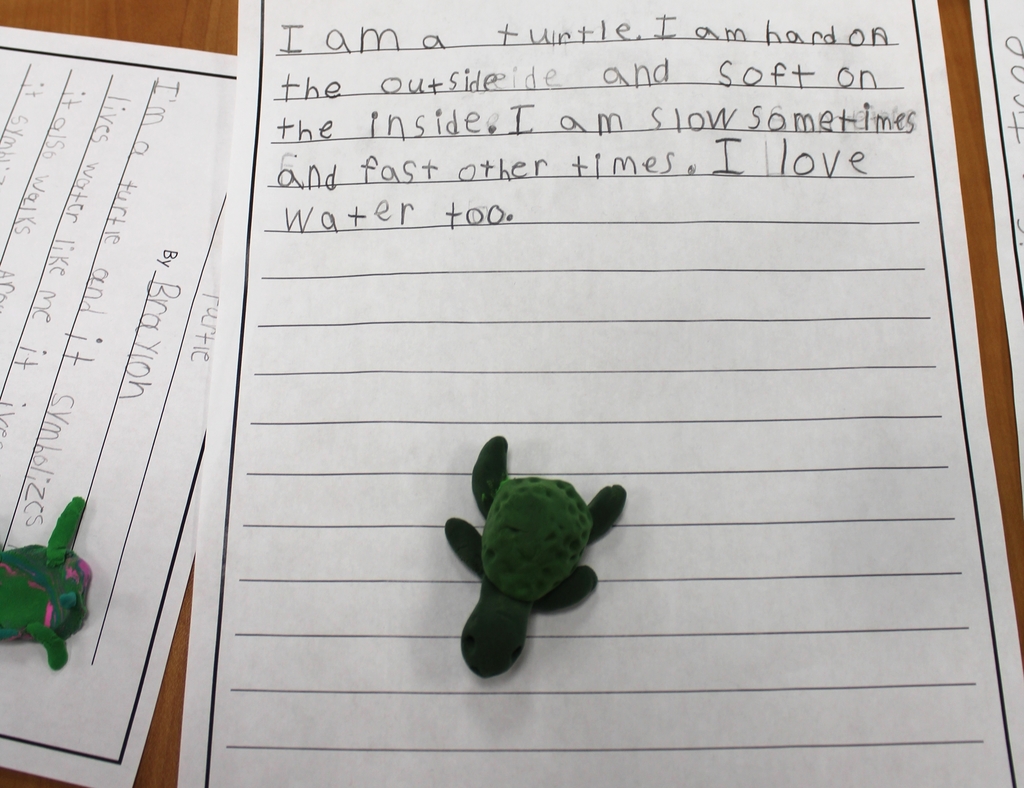 I am a turtle. I am hard on
the outside and soft on
the inside. I am slow sometimes
and fast other times. I love
water too.
Turtle
By
I'm a turtle and it symbolizes
lives water like me it
it also walks
it